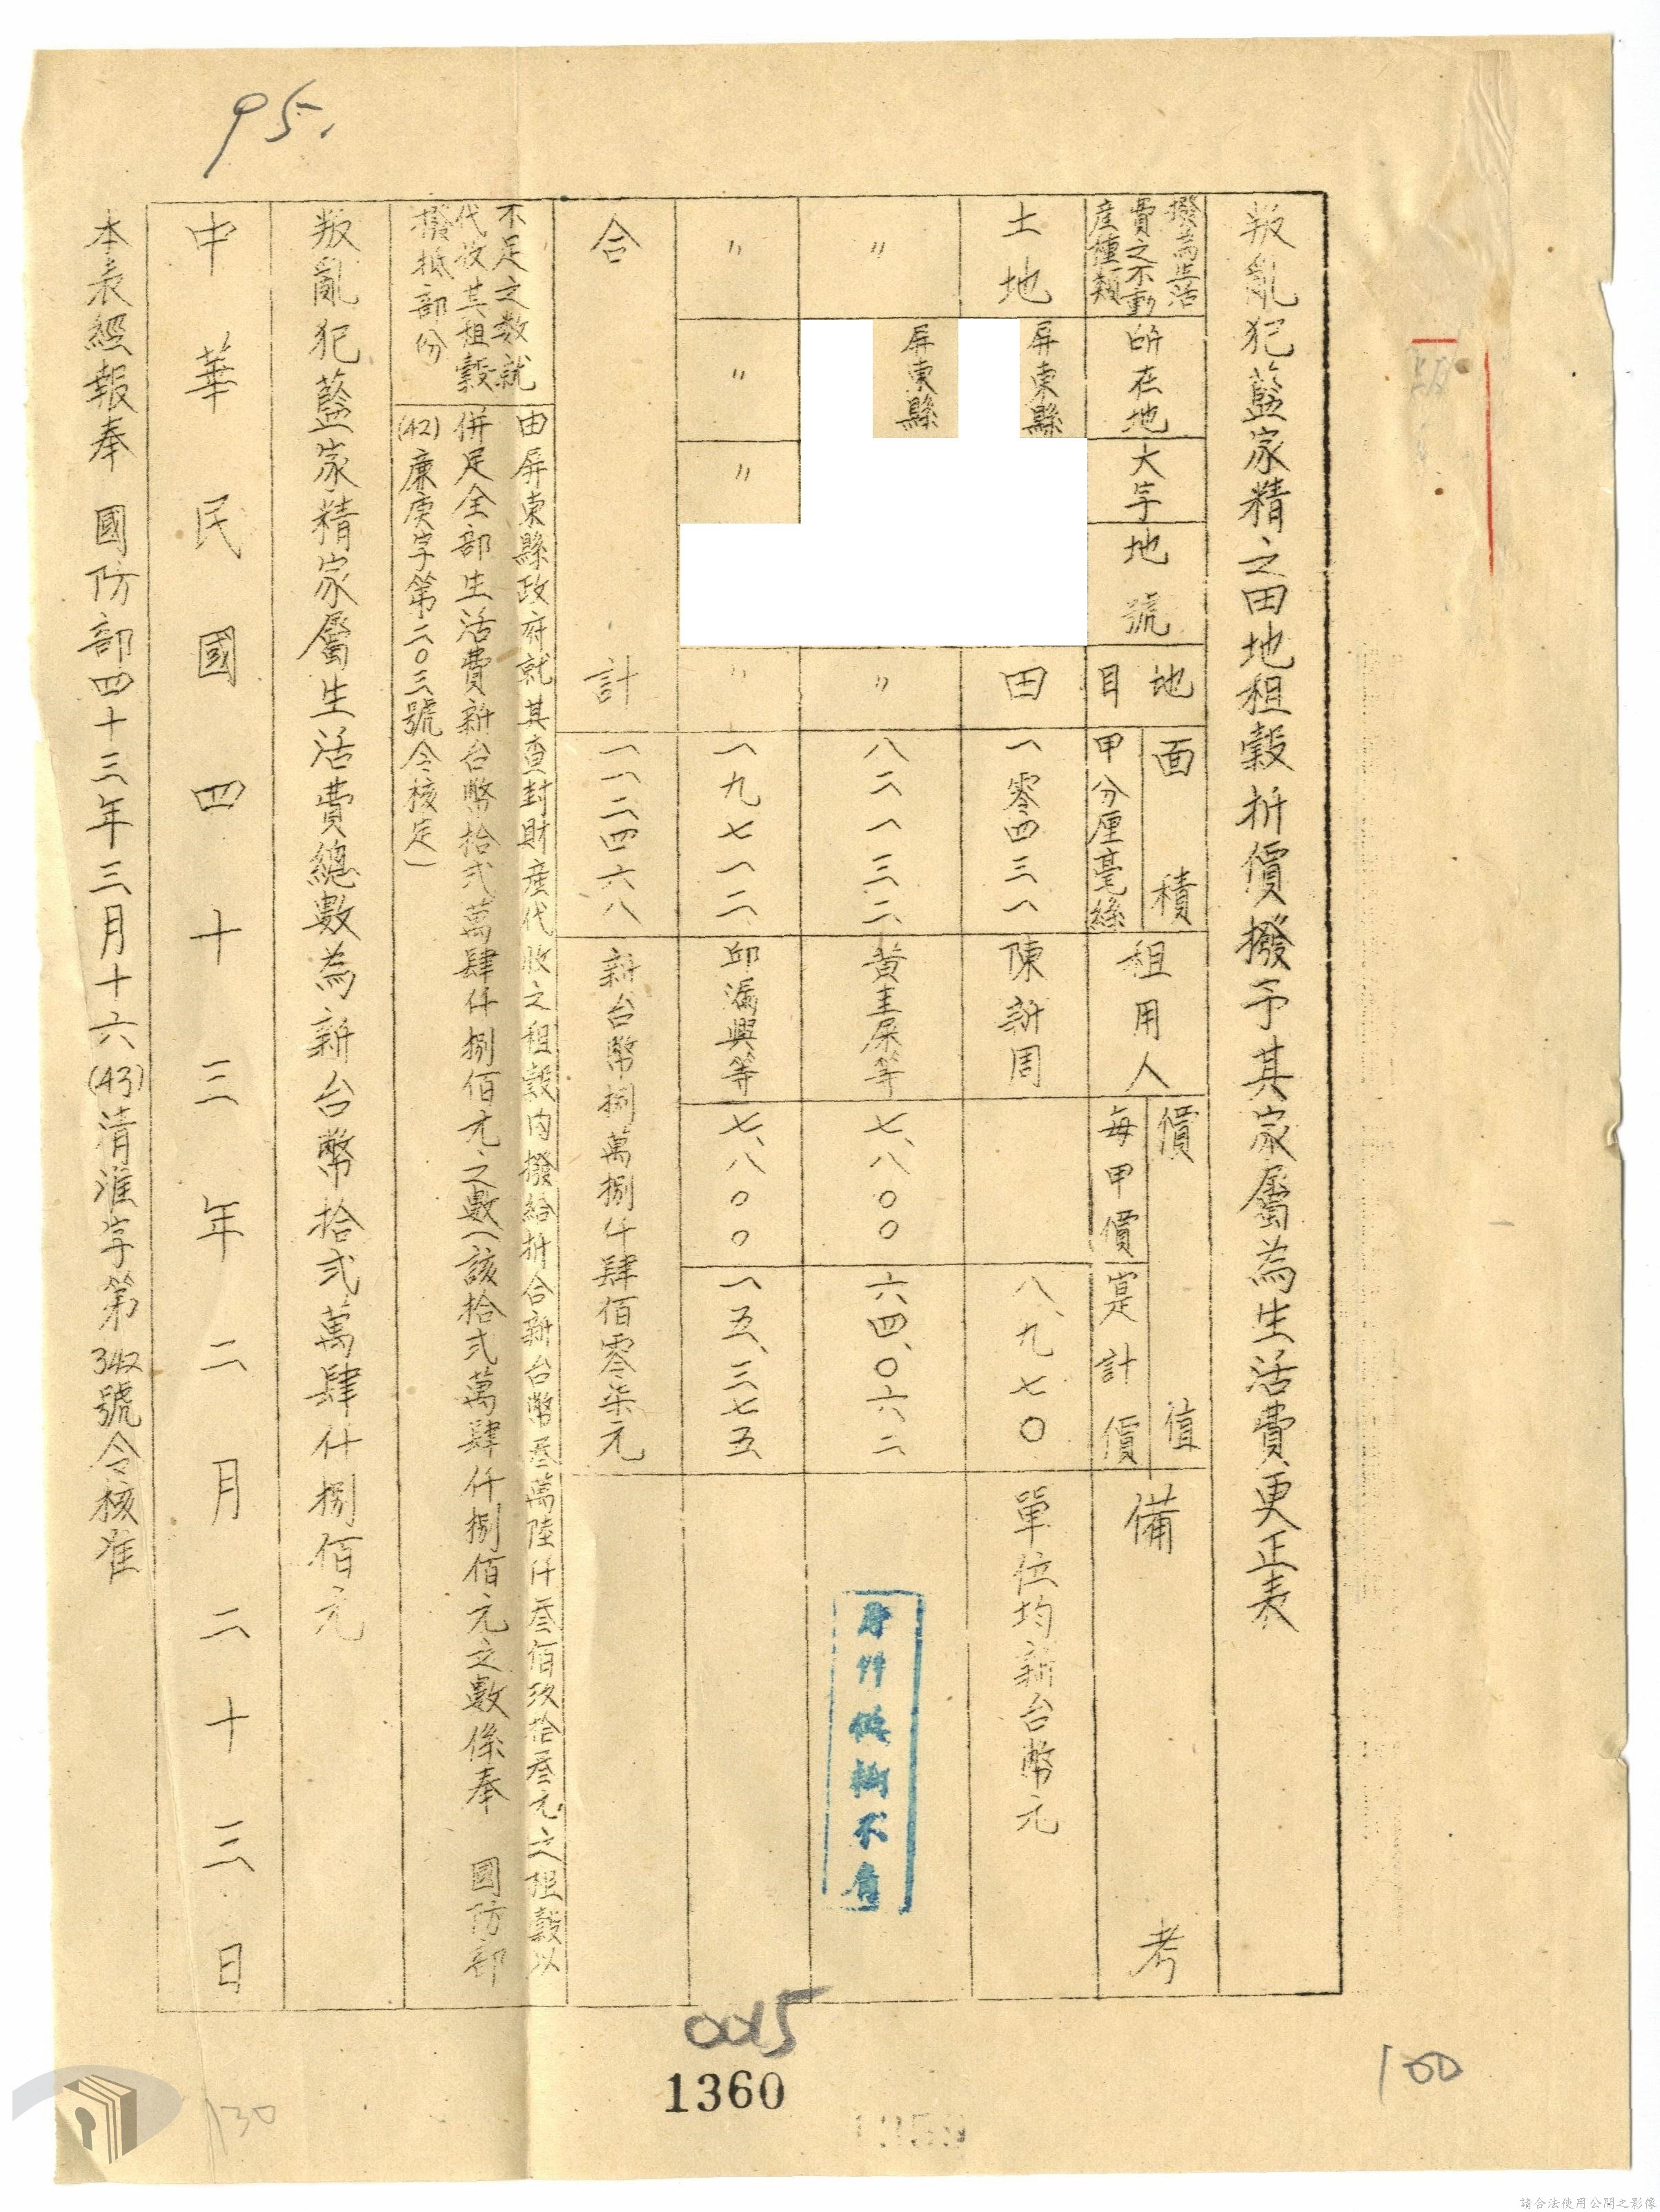 95.
叛亂犯藍家精之田地租穀折價撥予其家屬為生活費更正表
撥為生活費之不動產種類
所在地
大字
地號
地目
面積
甲分厘毫絲
租用人
價值
每甲價
寔計價
備考
土地
屏東縣
田
一零四三一
陳新周
八、九七〇
單位均新台幣元
〃
屏東縣
〃
八二一三二
黃圭屎等
七、八〇〇
六四、〇六二
〃
〃
〃
〃
一九七一二
邱滿興等
七、八〇〇
一五、三七五
合計
一一二四六八
新台幣捌萬捌仟肆佰零柒元
不足之数就
代收其租穀
撥抵部份
由屏東縣政府就其查封財産代收之租穀内撥給折合新台幣叁萬陸仟叁佰玖拾叁元之租穀以
併足全部生活費新台幣拾弍萬肆仟捌佰元之數(該拾弍萬肆仟捌佰元之數係奉 國防部
(42)廉庚字第二〇三號令核定)
叛亂犯藍家精家屬生活費總數為新台幣拾弍萬肆仟捌佰元
中華民國四十三年二月二十三日
本表經報奉 國防部四十三年三月十六(43)清淮字第342號令核准
附件供樹不肩
0015
1360
100
130
請合法使用公開之影像